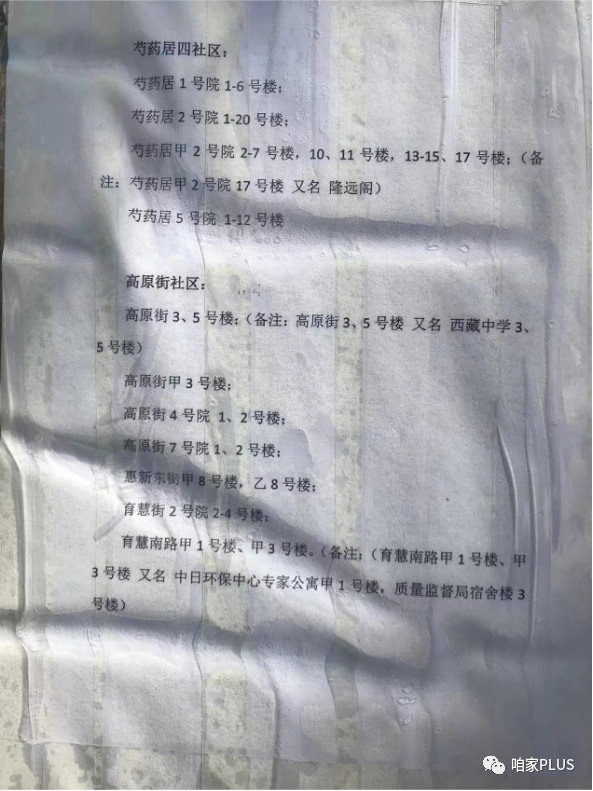 芍药居四社区：
芍药居1号院1-6号楼；
芍药居2号院1-20号楼；
芍药居甲2号院2-7号楼，10、11号楼，13-15、17号楼；（备
注：芍药居甲2号院17号楼 又名 隆远阁）
芍药居5号院 1-12号楼
高原街社区：
高原街3、5号楼；（备注：高原街3、5号楼 又名 西藏中学3、
5号楼）
高原街甲3号楼；
高原街4号院 1、2号楼；
高原街7号院1、2号楼；
惠新东街甲8号楼，乙8号楼；
育慧街2号院2-4号楼；
育慧南路甲1号楼、甲3号楼。（备注：（育慧南路甲1号楼、甲
3号楼 又名 中日环保中心专家公寓甲1号楼，质量监督局宿舍楼3
号楼）
咱家PLUS